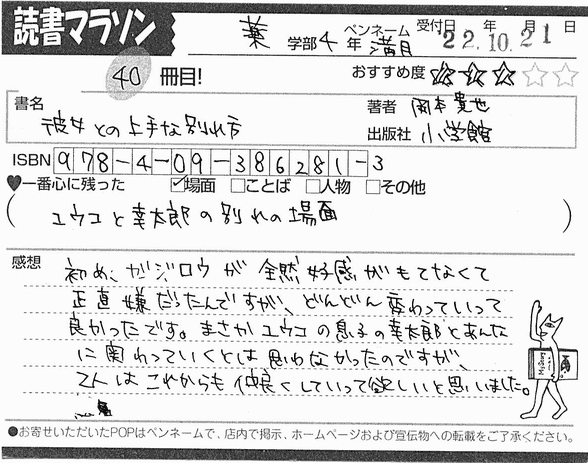 読書マラソン
薬 学部 4 年 ペンネーム 満月 受付日 年 月 日
22.10.21
40 冊目! おすすめ度 ★★★☆☆
書名 彼女との上手な別れ方
著者 岡本貴也
出版社 小学館
ISBN 978-4-09-386281-3
♥一番心に残った ☑場面 □ことば □人物 □その他
(ユウコと幸太郎の別れの場面)
感想 初め、ガジロウが全然好感がもてなくて
正直嫌だったんですが、どんどん変わっていって
良かったです。まさかユウコの息子の幸太郎とあんな
に関わっていくとは思わなかったのですが、
2人はこれからも仲良くしていって欲しいと思いました。
●お寄せいただいたPOPはペンネームで、店内で掲示、ホームページおよび宣伝物への転載をご了承ください。